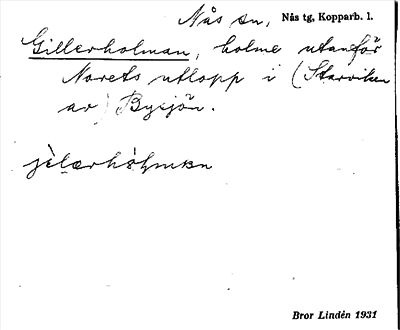 Nås sn, Nås tg, Kopparb. l.
Gillerholman, holme utanför
Norets utlopp i (Storviken
av) Bysjön.
Bror Lindén 1931